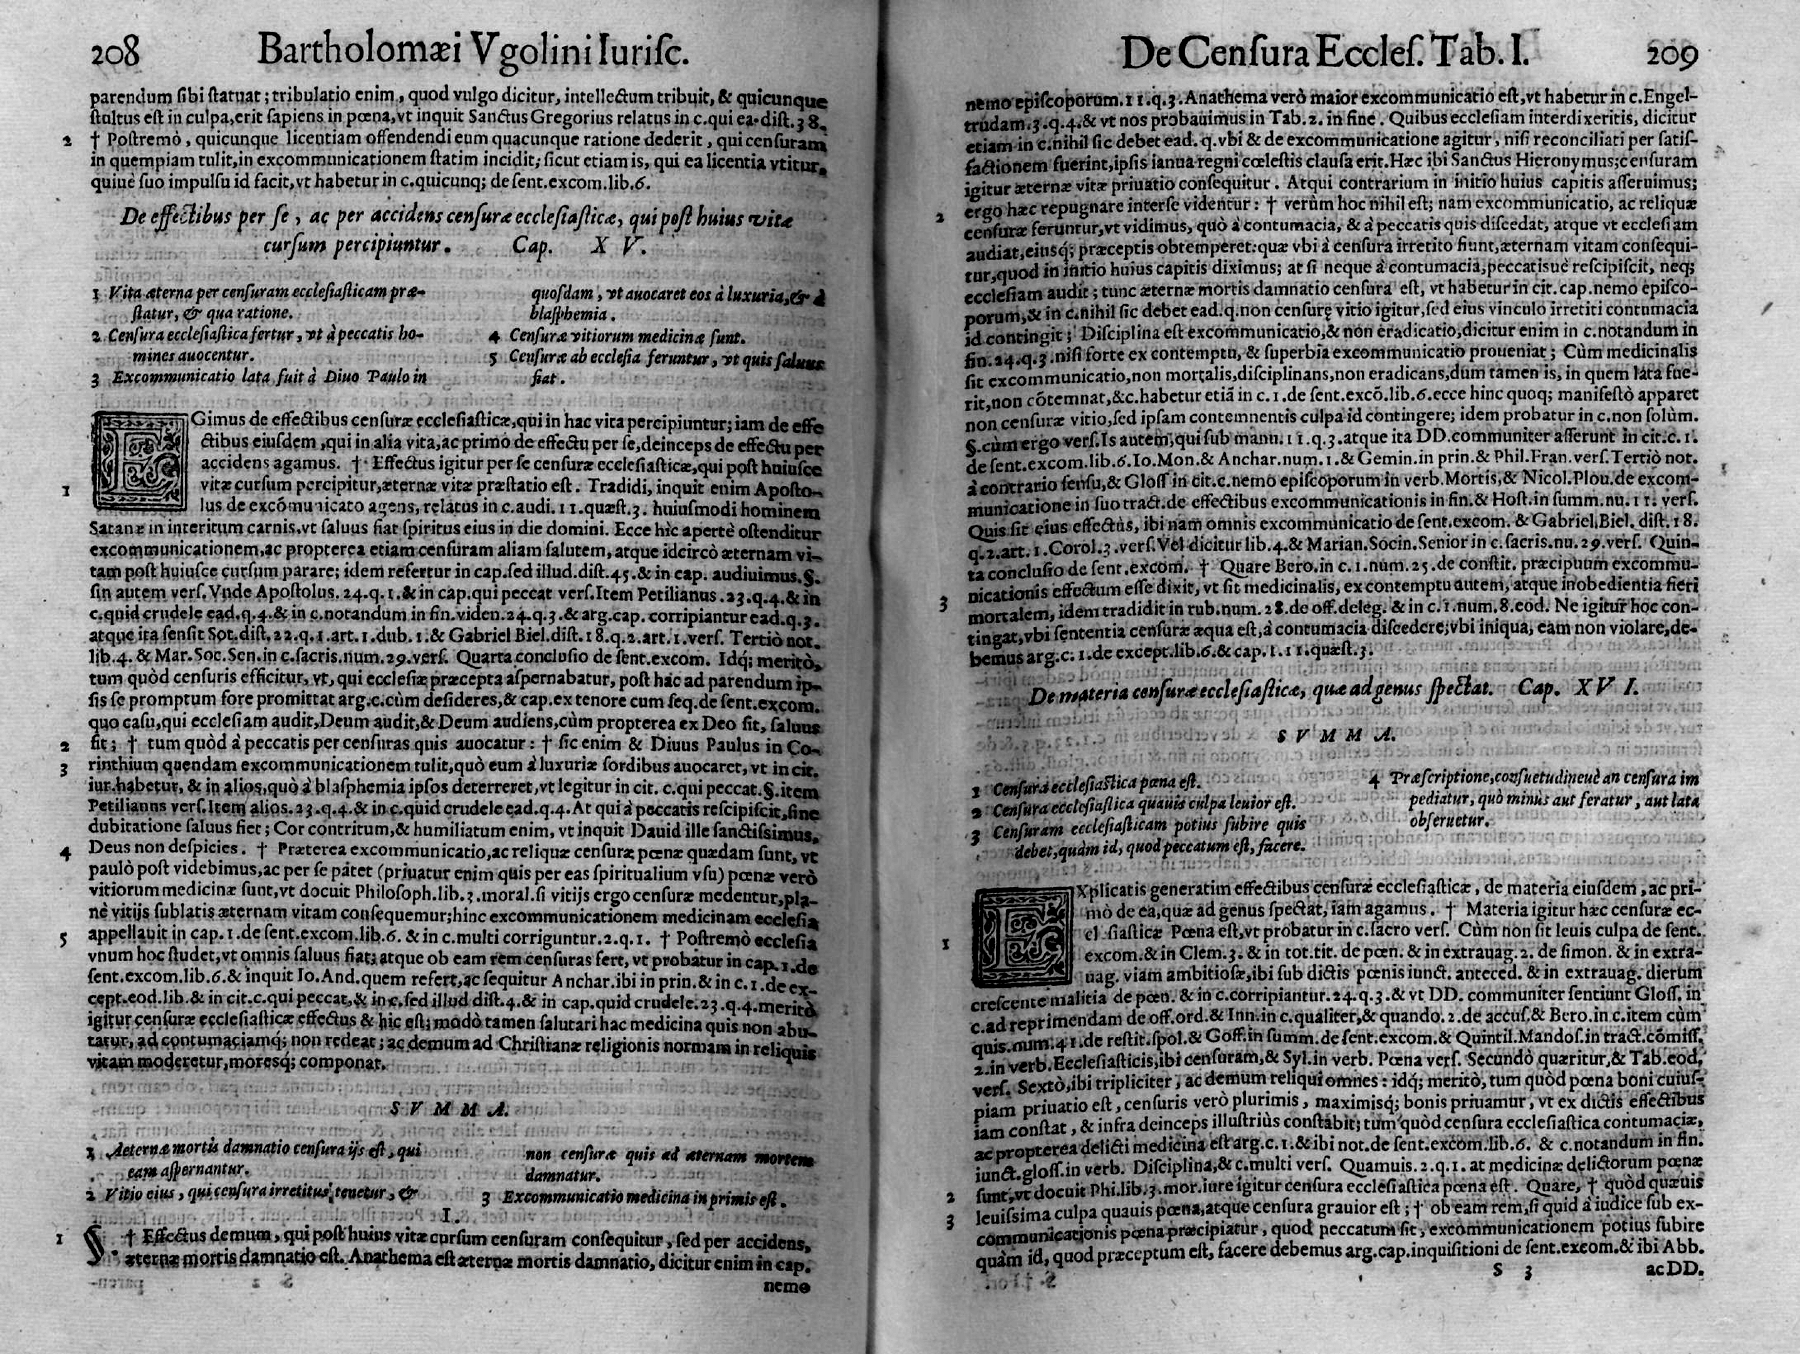 208 Bartholomæi Vgolini Iurisc.
parendum sibi statuat; tribulatio enim, quod vulgo dicitur, intellectum tribuit, & quicunque
stultus est in culpa, erit sapiens in pœna, vt inquit Sanctus Gregorius relatus in c. qui ea. dist. 38.
2 † Postremò, quicunque licentiam offendendi eum quacunque ratione dederit, qui censuram
in quempiam tulit, in excommunicationem statim incidit; sicut etiam is, qui ea licentia vtitur,
quiuè suo impulsu id facit, vt habetur in c. quicunq; de sent. excom. lib. 6.
De effectibus per se, ac per accidens censuræ ecclesiasticæ, qui post huius vitæ
cursum percipiuntur. Cap. XV.
1 Vita æterna per censuram ecclesiasticam præ-
statur, & qua ratione.
2 Censura ecclesiastica fertur, vt à peccatis ho-
mines auocentur.
3 Excommunicatio lata fuit à Diuo Paulo in
quosdam, vt auocaret eos à luxuria, & à
blasphemia.
4 Censuræ vitiorum medicinæ sunt.
5 Censuræ ab ecclesia feruntur, vt quis saluus
fiat.
EGimus de effectibus censuræ ecclesiasticæ, qui in hac vita percipiuntur; iam de effe
ctibus eiusdem, qui in alia vita, ac primò de effectu per se, deinceps de effectu per
accidens agamus. † Effectus igitur per se censuræ ecclesiasticæ, qui post huiusce
1 vitæ cursum percipitur, æternæ vitæ præstatio est. Tradidi, inquit enim Aposto-
lus de excōmunicato agens, relatus in c. audi. 11. quæst. 3. huiusmodi hominem
Satanæ in interitum carnis, vt saluus fiat spiritus eius in die domini. Ecce hic apertè ostenditur
excommunicationem, ac propterea etiam censuram aliam salutem, atque idcircò æternam vi-
tam post huiusce cursum parare; idem refertur in cap. sed illud. dist. 45. & in cap. audiuimus. §.
sin autem vers. Vnde Apostolus. 24. q. 1. & in cap. qui peccat vers. Item Petilianus. 23. q. 4. & in
c. quid crudele ead. q. 4. & in c. notandum in fin. viden. 24. q. 3. & arg. cap. corripiantur ead. q. 3.
atque ita sensit Sot. dist. 22. q. 1. art. 1. dub. 1. & Gabriel Biel. dist. 18. q. 2. art. 1. vers. Tertiò not.
lib. 4. & Mar. Soc. Sen. in c. sacris. num. 29. vers. Quarta conclusio de sent. excom. Idq; meritò,
tum quòd censuris efficitur, vt, qui ecclesiæ præcepta aspernabatur, post hac ad parendum ip-
sis se promptum fore promittat arg. c. cùm desideres, & cap. ex tenore cum seq. de sent. excom.
quo casu, qui ecclesiam audit, Deum audit, & Deum audiens, cùm propterea ex Deo sit, saluus
2 fit; † tum quòd à peccatis per censuras quis auocatur: † sic enim & Diuus Paulus in Co-
3 rinthium quendam excommunicationem tulit, quò eum à luxuriæ sordibus auocaret, vt in cit.
iur. habetur, & in alios, quò à blasphemia ipsos deterreret, vt legitur in cit. c. qui peccat. §. item
Petilianus vers. Item alios. 23. q. 4. & in c. quid crudele ead. q. 4. At qui à peccatis rescipiscit, sine
dubitatione saluus fiet; Cor contritum, & humiliatum enim, vt inquit Dauid ille sanctissimus,
4 Deus non despicies. † Præterea excommunicatio, ac reliquæ censuræ pœnæ quædam sunt, vt
paulò post videbimus, ac per se pàtet (priuatur enim quis per eas spiritualium vsu) pœnæ verò
vitiorum medicinæ sunt, vt docuit Philosoph. lib. 3. moral. si vitijs ergo censuræ medentur, pla-
nè vitijs sublatis æternam vitam consequemur; hinc excommunicationem medicinam ecclesia
5 appellauit in cap. 1. de sent. excom. lib. 6. & in c. multi corriguntur. 2. q. 1. † Postremò ecclesia
vnum hoc studet, vt omnis saluus fiat; atque ob eam rem censuras fert, vt probatur in cap. 1. de
sent. excom. lib. 6. & inquit Io. And. quem refert, ac sequitur Anchar. ibi in prin. & in c. 1. de ex-
cept. eod. lib. & in cit. c. qui peccat, & in c. sed illud dist. 4. & in cap. quid crudele. 23. q. 4. meritò
igitur censuræ ecclesiasticæ effectus & hic est; modò tamen salutari hac medicina quis non abu-
tatur, ad contumaciamq; non redeat; ac demum ad Christianæ religionis normam in reliquis
vitam moderetur, moresq; componat.
SVMMA.
1 Aeternæ mortis damnatio censura ijs est, qui
eam aspernantur.
2 Vitio eius, qui censura irretitus tenetur, &
non censuræ quis ad æternam mortem
damnatur.
3 Excommunicatio medicina in primis est.
I.
1 §. † Effectus demum, qui post huius vitæ cursum censuram consequitur, sed per accidens,
æternæ mortis damnatio est. Anathema est æternæ mortis damnatio, dicitur enim in cap.
nemo
De Censura Eccles. Tab. I. 209
nemo episcoporum. 11. q. 3. Anathema verò maior excommunicatio est, vt habetur in c. Engel-
trudam. 3. q. 4. & vt nos probauimus in Tab. 2. in fine. Quibus ecclesiam interdixeritis, dicitur
etiam in c. nihil sic debet ead. q. vbi & de excommunicatione agitur, nisi reconciliati per satis-
factionem fuerint, ipsis ianua regni cœlestis clausa erit. Hæc ibi Sanctus Hieronymus; censuram
igitur æternæ vitæ priuatio consequitur. Atqui contrarium in initio huius capitis asseruimus;
2 ergo hæc repugnare inter se videntur: † verùm hoc nihil est; nam excommunicatio, ac reliquæ
censuræ feruntur, vt vidimus, quò à contumacia, & à peccatis quis discedat, atque vt ecclesiam
audiat, eiusq; præceptis obtemperet: quæ vbi à censura irretito fiunt, æternam vitam consequi-
tur, quod in initio huius capitis diximus; at si neque à contumacia, peccatisuè rescipiscit, neq;
ecclesiam audit; tunc æternæ mortis damnatio censura est, vt habetur in cit. cap. nemo episco-
porum, & in c. nihil sic debet ead. q. non censuræ vitio igitur, sed eius vinculo irretiti contumacia
id contingit; Disciplina est excommunicatio, & non eradicatio, dicitur enim in c. notandum in
fin. 24. q. 3. nisi forte ex contemptu, & superbia excommunicatio proueniat; Cùm medicinalis
sit excommunicatio, non mortalis, disciplinans, non eradicans, dum tamen is, in quem lata fue-
rit, non cōtemnat, &c. habetur etiā in c. 1. de sent. excō. lib. 6. ecce hinc quoq; manifestò apparet
non censuræ vitio, sed ipsam contemnentis culpa id contingere; idem probatur in c. non solùm.
§. cùm ergo vers. Is autem, qui sub manu. 11. q. 3. atque ita DD. communiter asserunt in cit. c. 1.
de sent. excom. lib. 6. Io. Mon. & Anchar. num. 1. & Gemin. in prin. & Phil. Fran. vers. Tertiò not.
à contrario sensu, & Gloss in cit. c. nemo episcoporum in verb. Mortis, & Nicol. Plou. de excom-
municatione in suo tract. de effectibus excommunicationis in fin. & Host. in summ. nu. 11. vers.
Quis sit eius effectus, ibi nam omnis excommunicatio de sent. excom. & Gabriel. Biel. dist. 18.
q. 2. art. 1. Corol. 3. vers. Vel dicitur lib. 4. & Marian. Socin. Senior in c. sacris. nu. 29. vers. Quin-
ta conclusio de sent. excom. † Quare Bero. in c. 1. num. 25. de constit. præcipuum excommu-
nicationis effectum esse dixit, vt sit medicinalis, ex contemptu autem, atque inobedientia fieri
3 mortalem, idem tradidit in rub. num. 28. de off. deleg. & in c. 1. num. 8. eod. Ne igitur hoc con-
tingat, vbi sententia censuræ æqua est, à contumacia discedere; vbi iniqua, eam non violare, de-
bemus arg. c. 1. de except. lib. 6. & cap. 1. 11. quæst. 3.
De materia censuræ ecclesiasticæ, quæ ad genus spectat. Cap. XVI.
SVMMA.
1 Censura ecclesiastica pœna est.
2 Censura ecclesiastica quauis culpa leuior est.
3 Censuram ecclesiasticam potius subire quis
debet, quàm id, quod peccatum est, facere.
4 Præscriptione, consuetudineuè an censura im
pediatur, quò minùs aut feratur, aut lata
obseruetur.
EXplicatis generatim effectibus censuræ ecclesiasticæ, de materia eiusdem, ac pri-
mò de ea, quæ ad genus spectat, iam agamus. † Materia igitur hæc censuræ ec-
1 clesiasticæ Pœna est, vt probatur in c. sacro vers. Cùm non sit leuis culpa de sent.
excom. & in Clem. 3. & in tot. tit. de pœn. & in extrauag. 2. de simon. & in extra-
uag. viam ambitiosæ, ibi sub dictis pœnis iunct. anteced. & in extrauag. dierum
crescente malitia de pœn. & in c. corripiantur. 24. q. 3. & vt DD. communiter sentiunt Gloss. in
c. ad reprimendam de off. ord. & Inn. in c. qualiter, & quando. 2. de accus. & Bero. in c. item cùm
quis. num. 41. de restit. spol. & Goff. in summ. de sent. excom. & Quintil. Mandos. in tract. cōmiss.
2. in verb. Ecclesiasticis, ibi censuram, & Syl. in verb. Pœna vers. Secundò quæritur, & Tab. eod.
vers. Sextò, ibi tripliciter, ac demum reliqui omnes: idq; meritò, tum quòd pœna boni cuius-
piam priuatio est, censuris verò plurimis, maximisq; bonis priuamur, vt ex dictis effectibus
iam constat, & infra deinceps illustriùs constabit; tum quòd censura ecclesiastica contumaciæ,
ac propterea delicti medicina est arg. c. 1. & ibi not. de sent. excom. lib. 6. & c. notandum in fin.
iunct. gloss. in verb. Disciplina, & c. multi vers. Quamuis. 2. q. 1. at medicinæ delictorum pœnæ
2 sunt, vt docuit Phi. lib. 3. mor. iure igitur censura ecclesiastica pœna est. Quare, † quòd quæuis
3 leuissima culpa quauis pœna, atque censura grauior est; † ob eam rem, si quid à iudice sub ex-
communicationis pœna præcipiatur, quod peccatum sit, excommunicationem potius subire
quàm id, quod præceptum est, facere debemus arg. cap. inquisitioni de sent. excom. & ibi Abb.
S 3 ac DD.